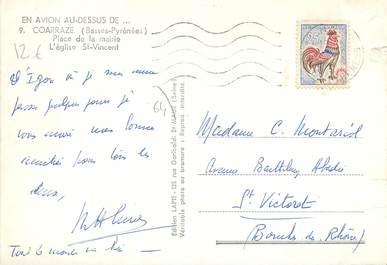 EN AVION AU-DESSUS DE ...
9. COARRAZE (Basses-Pyrénées)
Place de la mairie
L'église St-Vincent
12€
D'Igon où je me suis
passer quelques jours je
vous envoie mes bonnes
amitiés pour tous les
deux,
Tout le monde va bien
64
Edition LAPIE - 125 rue Garibaldi St-MAUR (Seine)
Véritable photo au bromure - Reprod. interdite
Madame C. Montariol
Avenue Barthélemy Abadie
St Victoret
(Bouches du Rhône)